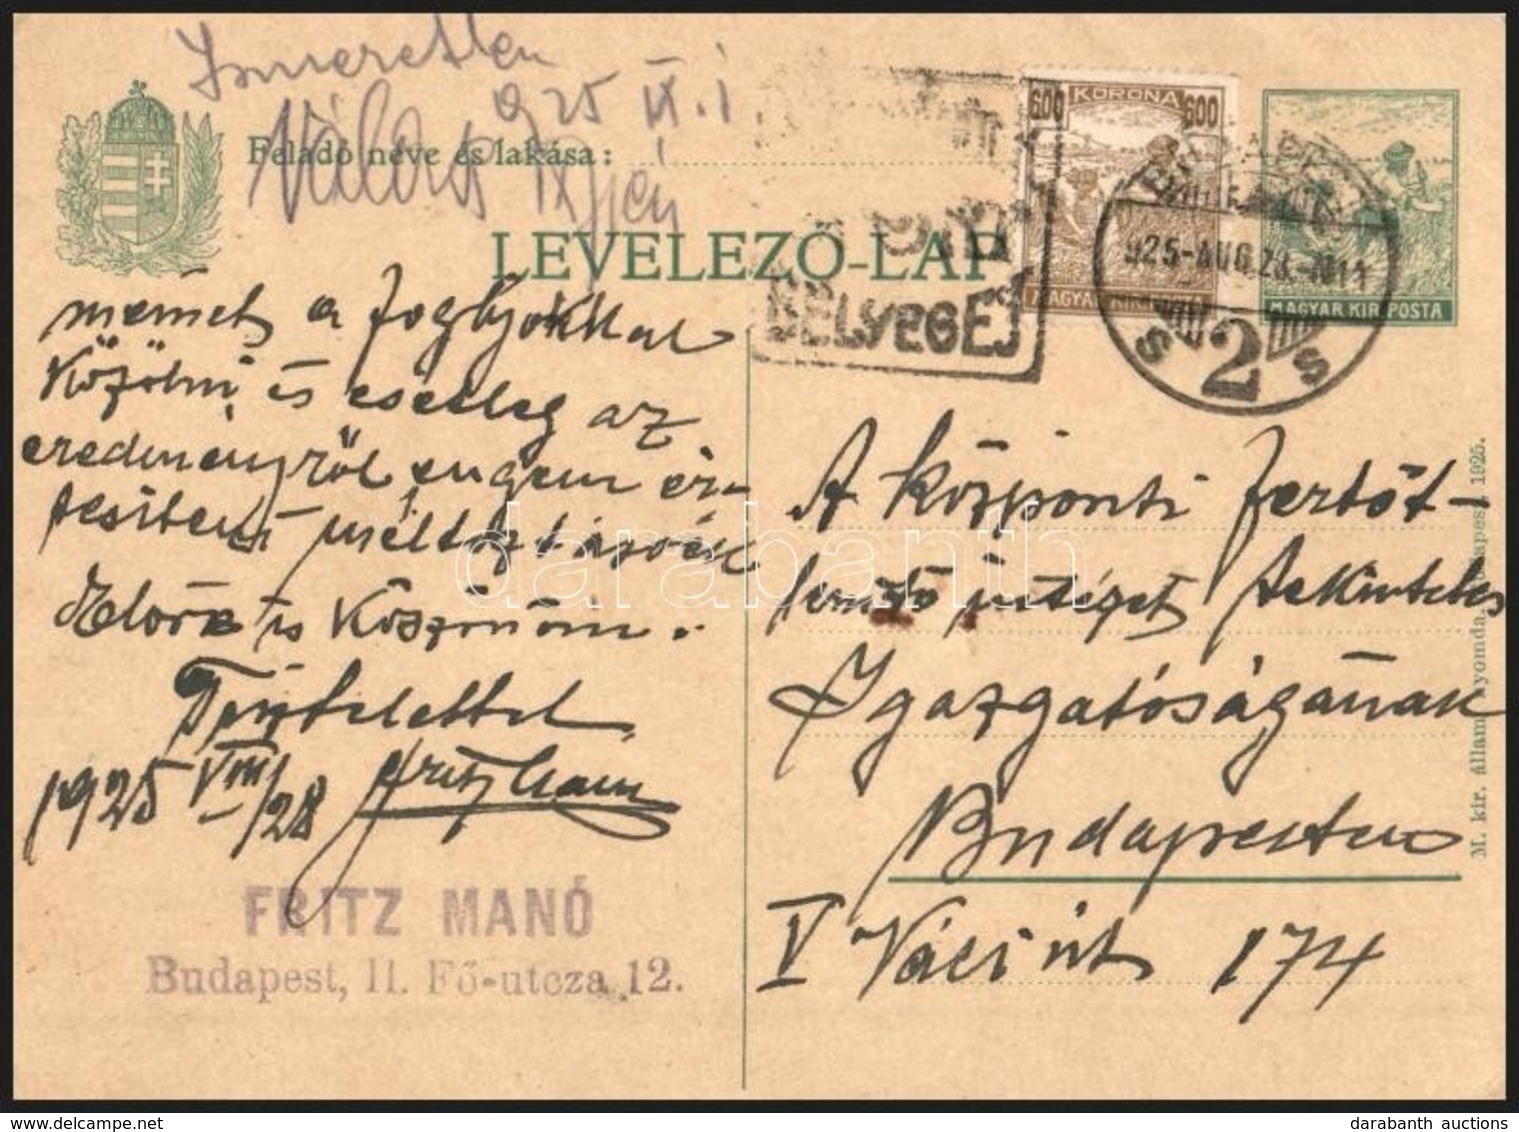 Ismeretlen
925 IX. 1
Feladó neve és lakása:
LEVELEZŐ-LAP
KORONA
600 600
MAGYAR KIR.
925-AUG.28.-N11
2
S S
MAGYAR KIR. POSTA
BÉLYEGÉJ
a foglyokkal
Közölni és esetleg az
eredményről engem ér-
tesíteni méltóztassék
Előre is Köszönöm.
Tisztelettel
1925 VIII/28 Fritz Manó
FRITZ MANÓ
Budapest, II. Fő-utcza 12.
A központi fertőt-
lenítő intézet tekintetes
Igazgatóságának
Budapesten
V Váci út 174
M. kir. állami nyomda, Budapest 1925.
darabanth
darabanth auctions
www.delcampe.net